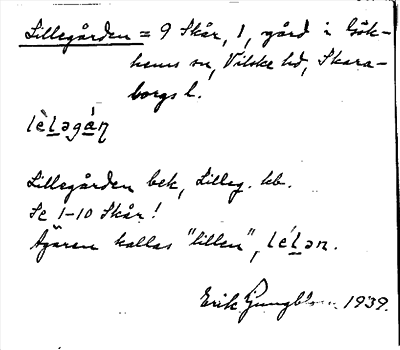 Lillegården = 9 Skår, 1, gård i Gök-
hems sn, Vilske hd, Skara-
borgs l.
lèḷəgáṇ
Lillegården bek, Lilleg. kb.
Se 1-10 Skår!
Ägaren kallas "lillen", léḷən.
Erik Ljungblom 1939.